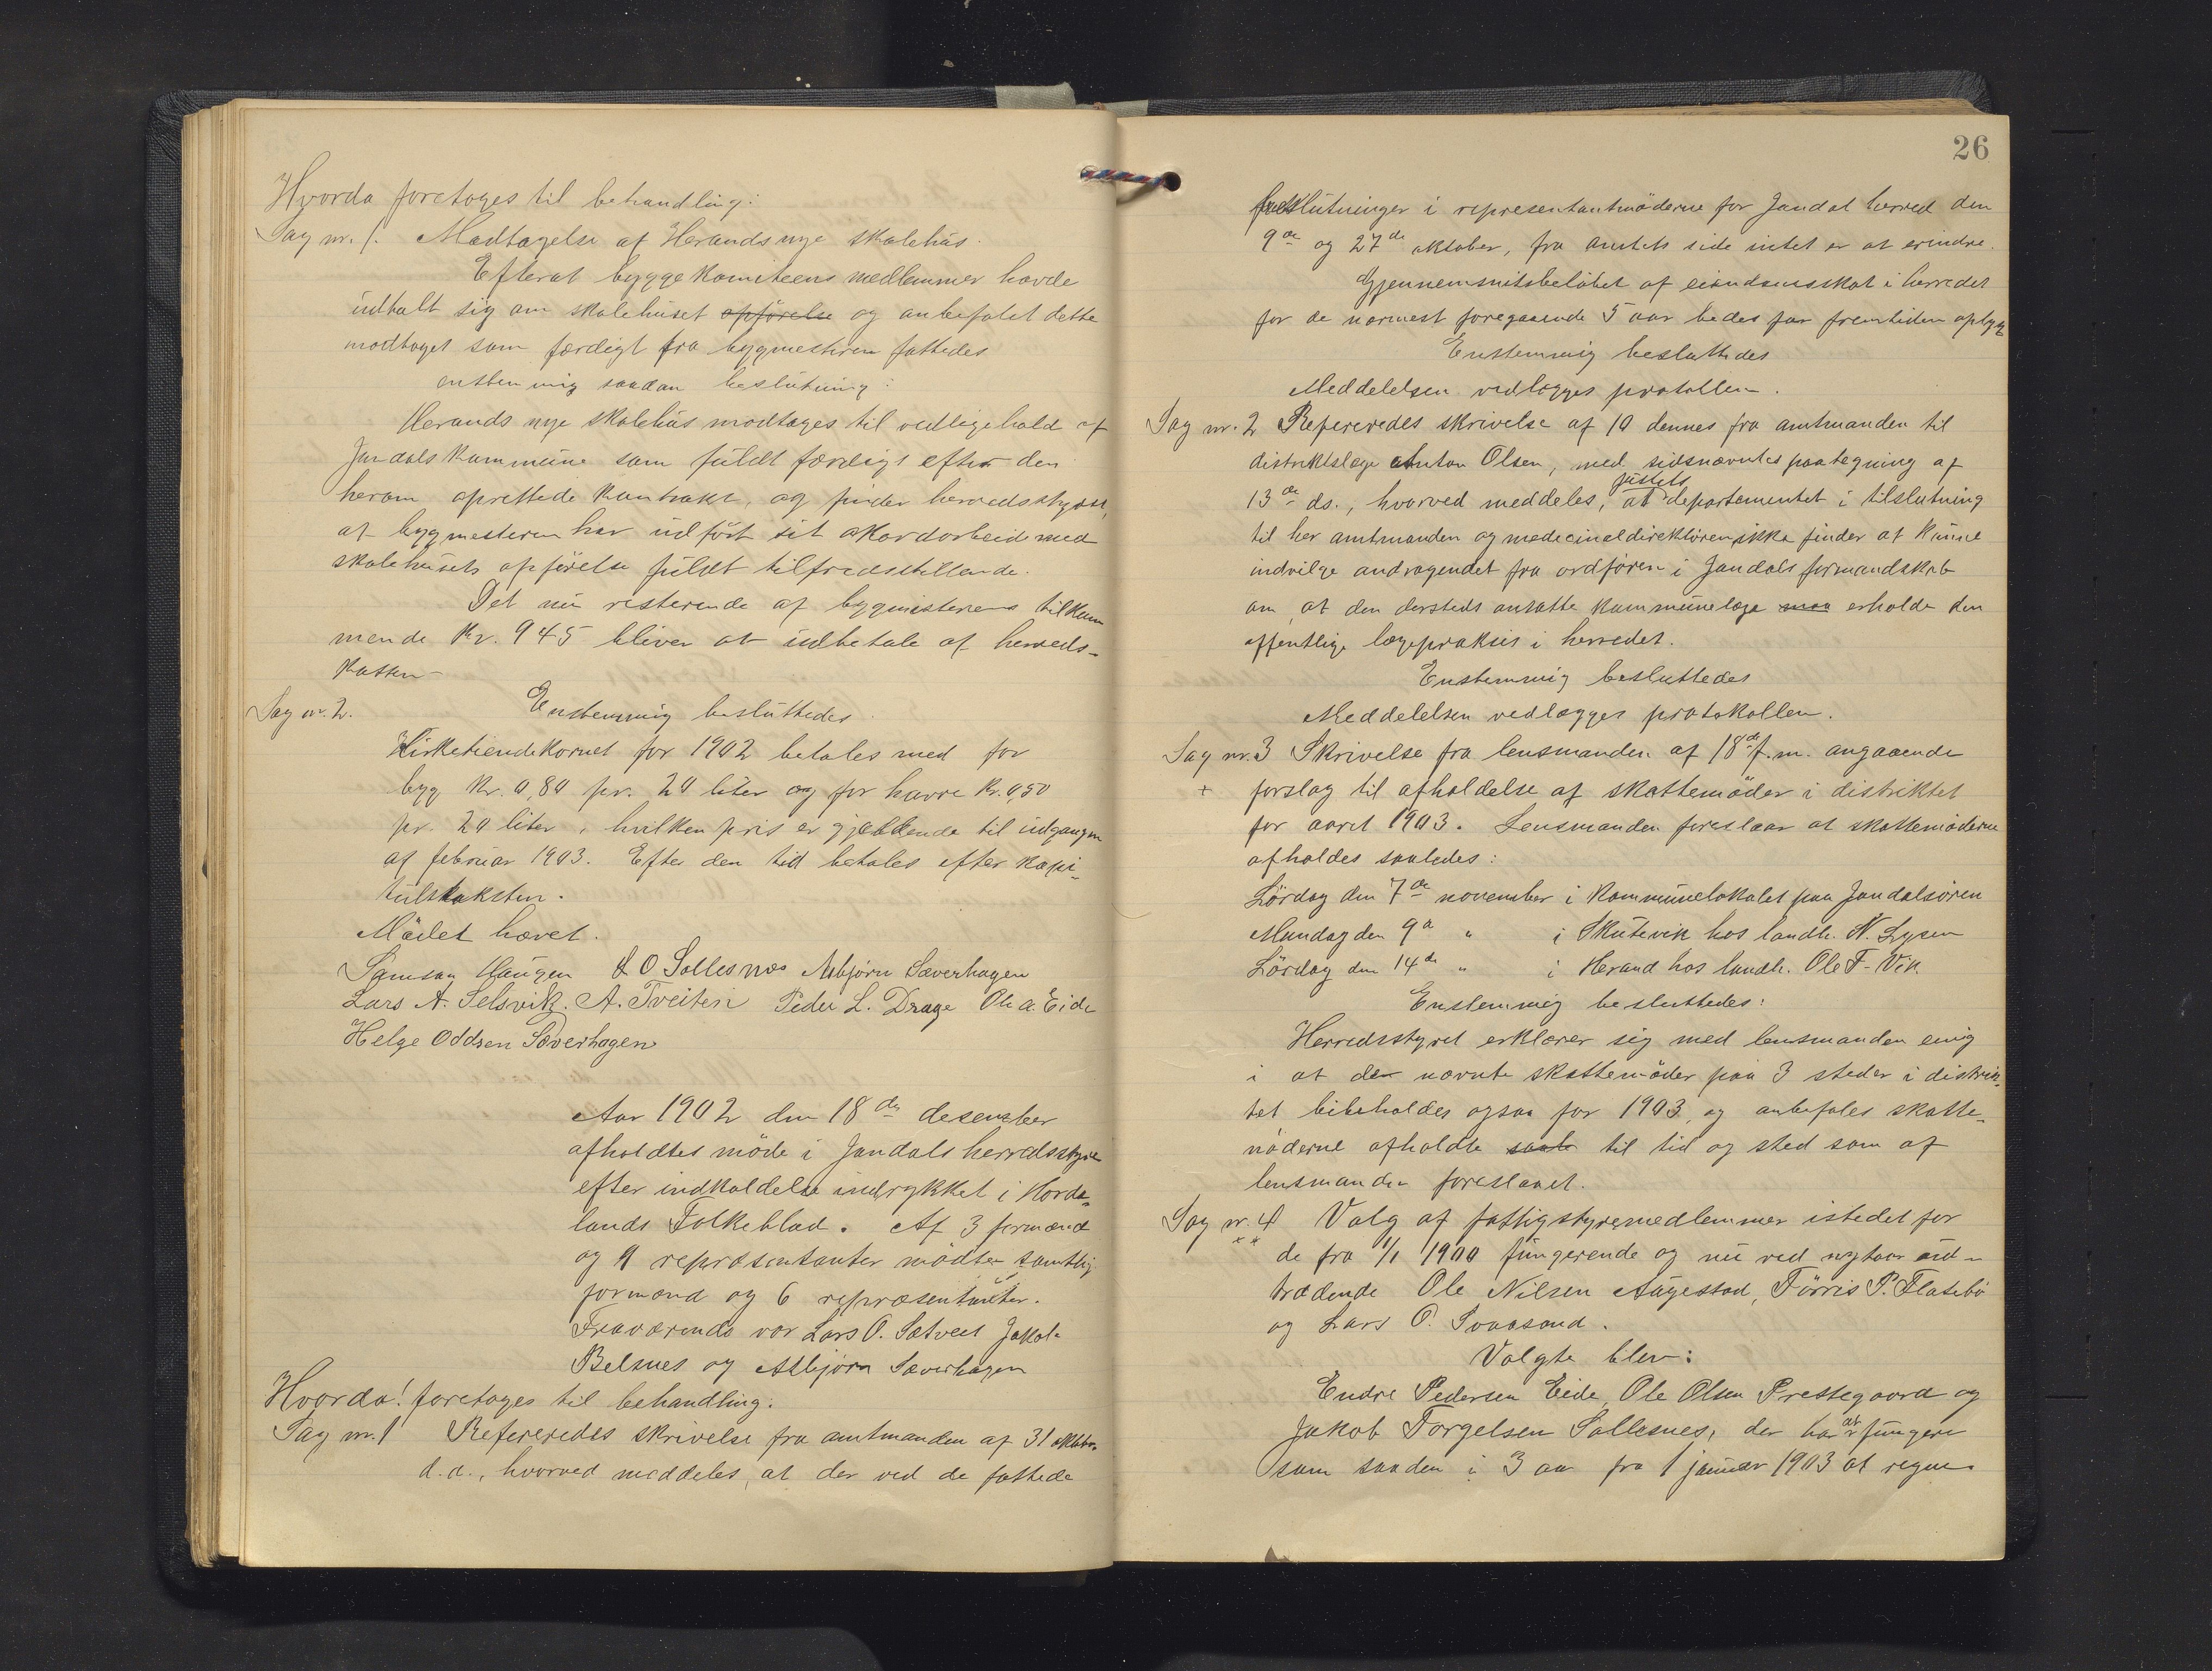 Hvorda foretoges til behandling:
Sag nr. 1. Modtagelse af Herands nye skolehus.
Efterat byggekomiteens medlemmer havde
udtalt sig om skolehuset opførelse og anbefalet dette
modtaget som færdigt fra bygmesteren fattedes
enstemmig saadan beslutning:
Herands nye skolehus modtages til vedligehold af
Jondals kommune som fuldt færdigt efter den
herom oprettede kontrakt, og finder herredsstyret,
at bygmesteren har udført sit akordarbeide med
skolehusets opførelse fuldt tilfredsstillende.
Det nu resterende af bygmesterens tilkom
mende kr. 945 bliver at udbetale af herreds-
kassen
Sag nr. 2. Enstemmig besluttedes
Kirketiendekornet for 1902 betales med for
byg kr. 0,80 pr. 20 liter og for havre kr. 0,50
pr. 20 liter, hvilken pris er gjældende til udgangen
af februar 1903. Efter den tid betales efter kapi-
tulstaksten.
Mødet hævet.
Samson Haugen J O Sollesnæs Asbjørn Sæverhagen
Lars A. Selsvik. A. Tveiten Peder L. Drage Ole A. Eide
Helge Oddsen Sæverhagen
Aar 1902 den 18de desember
afholdtes møde i Jondals herredsstyre
efter indkaldelse indrykket i Horda-
lands Folkeblad. Af 3 formænd
og 9 repræsentanter mødte samtlig
formænd og 6 repræsentanter.
Fraværende var Lars O. Sætveit Jakob
Belsnes og Asbjørn Sæverhagen
Hvorda! foretoges til behandling:
Sag nr. 1 Refereredes skrivelse fra amtmanden af 31 oktober
d.a., hvorved meddeles, at der ved de fattede
26
beslutninger i representantmøderne for Jondal herred den
9de og 27de oktober, fra amtets side intet er at erindre.
Gjennemsnitsbeløbet af eiendomsskat i herredet
for de nærmest foregaaende 5 aar bedes for fremtiden oplyst
Enstemmig besluttedes
Meddelelsen vedlægges protokollen.
Sag nr. 2 Refereredes skrivelse af 10 dennes fra amtmanden til
distriktslæge Anton Olsen, med sidsnævntes paategning af
13de ds., hvorved meddeles, at justits departementet i tilslutning
til her amtmanden og medicinaldirektøren ikke finder at kunne
indvilge andragendet fra ordføren i Jondals formandskab
om, at den dersteds ansatte kommunelæge maa erholde den
offentlige lægepraksis i herredet.
Enstemmig besluttedes
Meddelelsen vedlægges protokollen.
Sag nr. 3 Skrivelse fra lensmanden af 18de f.m. angaaende
+ forslag til afholdelse af skattemøder i distriktet
for aaret 1903. Lensmanden foreslaar at skattemøderne
afholdes saaledes:
Lördag den 7de november i kommunelokalet paa Jondalsøren
Mandag den 9de " i Skutevik hos landh. N. Lysen
Lördag den 14de " i Herand hos landh. Ole T. Vik
Enstemmig besluttedes:
Herredsstyret erklærer sig med lensmanden enig
i at de nævnte skattemøder paa 3 steder i distrik-
tet bibeholdes ogsaa for 1903, og anbefales skatte-
møderne afholdte saale til tid og sted som af
lensmanden foreslaaet.
Sag nr. 4 Valg af fattigstyremedlemmer istedet for
de fra 1/1 1900 fungerende og nu ved nytaar ud-
trædende Ole Nilsen Augestad, Tørris P. Flatebø
og Lars O. Svaasand.
Valgte blev:
Endre Pedersen Eide, Ole Olsen Prestegaard og
Jakob Torgelsen Sollesnes, der har at fungere
som saaden i 3 aar fra 1 januar 1903 at regne